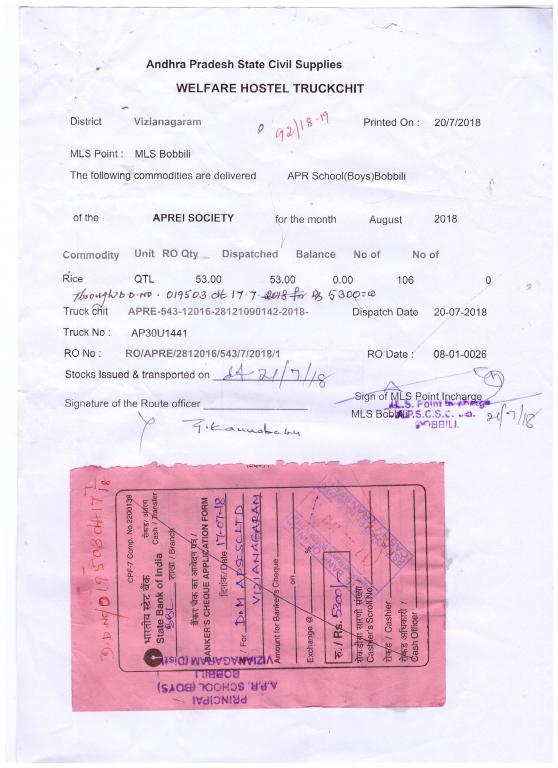 Andhra Pradesh State Civil Supplies
WELFARE HOSTEL TRUCKCHIT
District Vizianagaram 92/18-19 Printed On : 20/7/2018
MLS Point : MLS Bobbili
The following commodities are delivered APR School(Boys)Bobbili
of the APREI SOCIETY for the month August 2018
Commodity Unit RO Qty Dispatched Balance No of No of
Rice QTL 53.00 53.00 0.00 106 0
Through D.D.NO. 019503 dt 17.7.2018 for Rs 5300=00
Truck chit APRE-543-12016-28121090142-2018- Dispatch Date 20-07-2018
Truck No : AP30U1441
RO No : RO/APRE/2812016/543/7/2018/1 RO Date : 08-01-0026
Stocks Issued & transported on dt 21/7/18
Sign of MLS Point Incharge
Signature of the Route officer
M.L.S. Point In charge
MLS Bobbili A.P.S.C.S.C. Ltd. 21/7/18
BOBBILI.
G. Kannababu
D D NO/019503 dt 17/7/18
CPF-7 Comp. No.2200139
भारतीय स्टेट बैंक रोकड़/ अंतरण
State Bank of India Cash / Transfer
BBL शाखा / Branch
बैंकर चैक का आवेदन पत्र /
BANKER'S CHEQUE APPLICATION FORM
दिनांक/Date 17-07-18
/ For D.M APSCSCLTD
VIZIANAGARAM
Amount for Banker's Cheque
on
Exchange @ %
रु. / Rs. 5300/-
रोकड़िया सारणी संख्या /
Cashier's Scroll No.
रोकड़ / Cashier
रोकड़ अधिकारी /
Cash Officer
PRINCIPAL
A.P.R. SCHOOL (BOYS)
BOBBILI
VIZIANAGARAM (Dist)